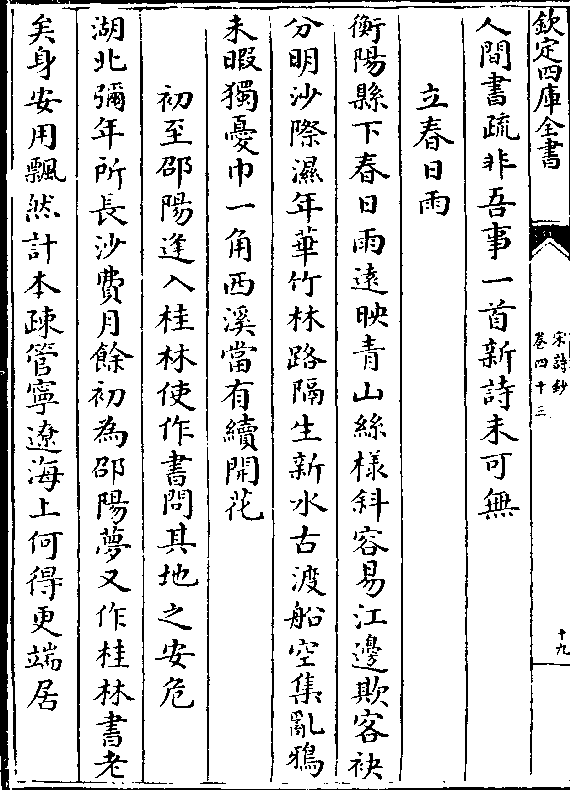 欽定四庫全書
宋詩鈔
卷四十三
十九
人間書疏非吾事一首新詩未可無
立春日雨
衡陽縣下春日雨遠映青山絲樣斜容易江邊欺客袂
分明沙際濕年華竹林路隔生新水古渡船空集亂鴉
未暇獨憂巾一角西溪當有續開花
初至邵陽逢入桂林使作書問其地之安危
湖北彌年所長沙費月餘初為邵陽夢又作桂林書老
矣身安用飄然計本疎管寧遼海上何得更端居